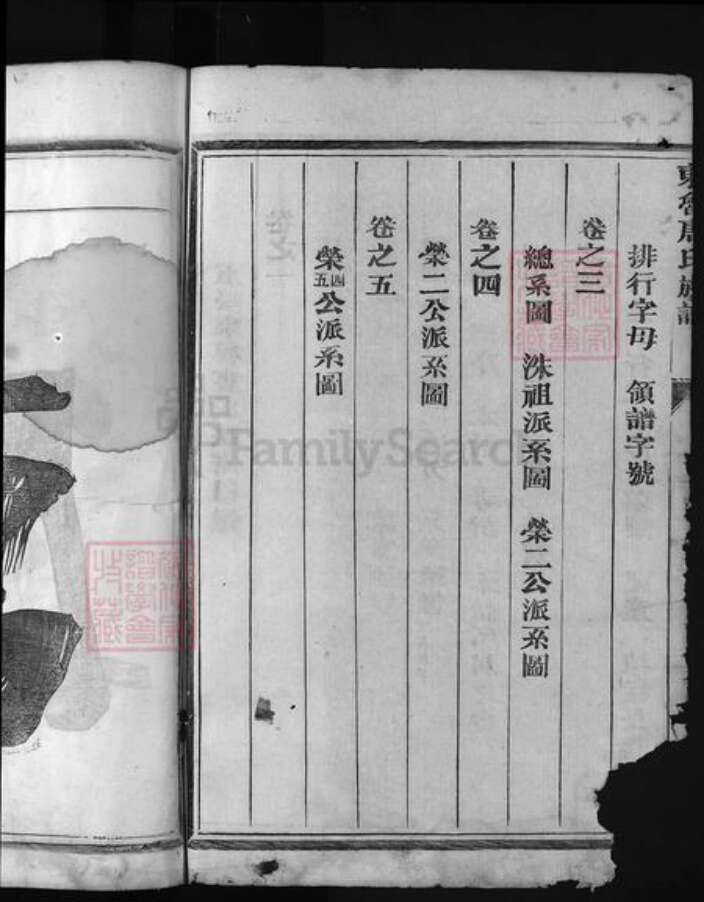 排行字母　領譜字號
卷之三
總系圖　洙祖派系圖　榮二公派系圖
卷之四
榮二公派系圖
卷之五
榮四五公派系圖
FamilySearch